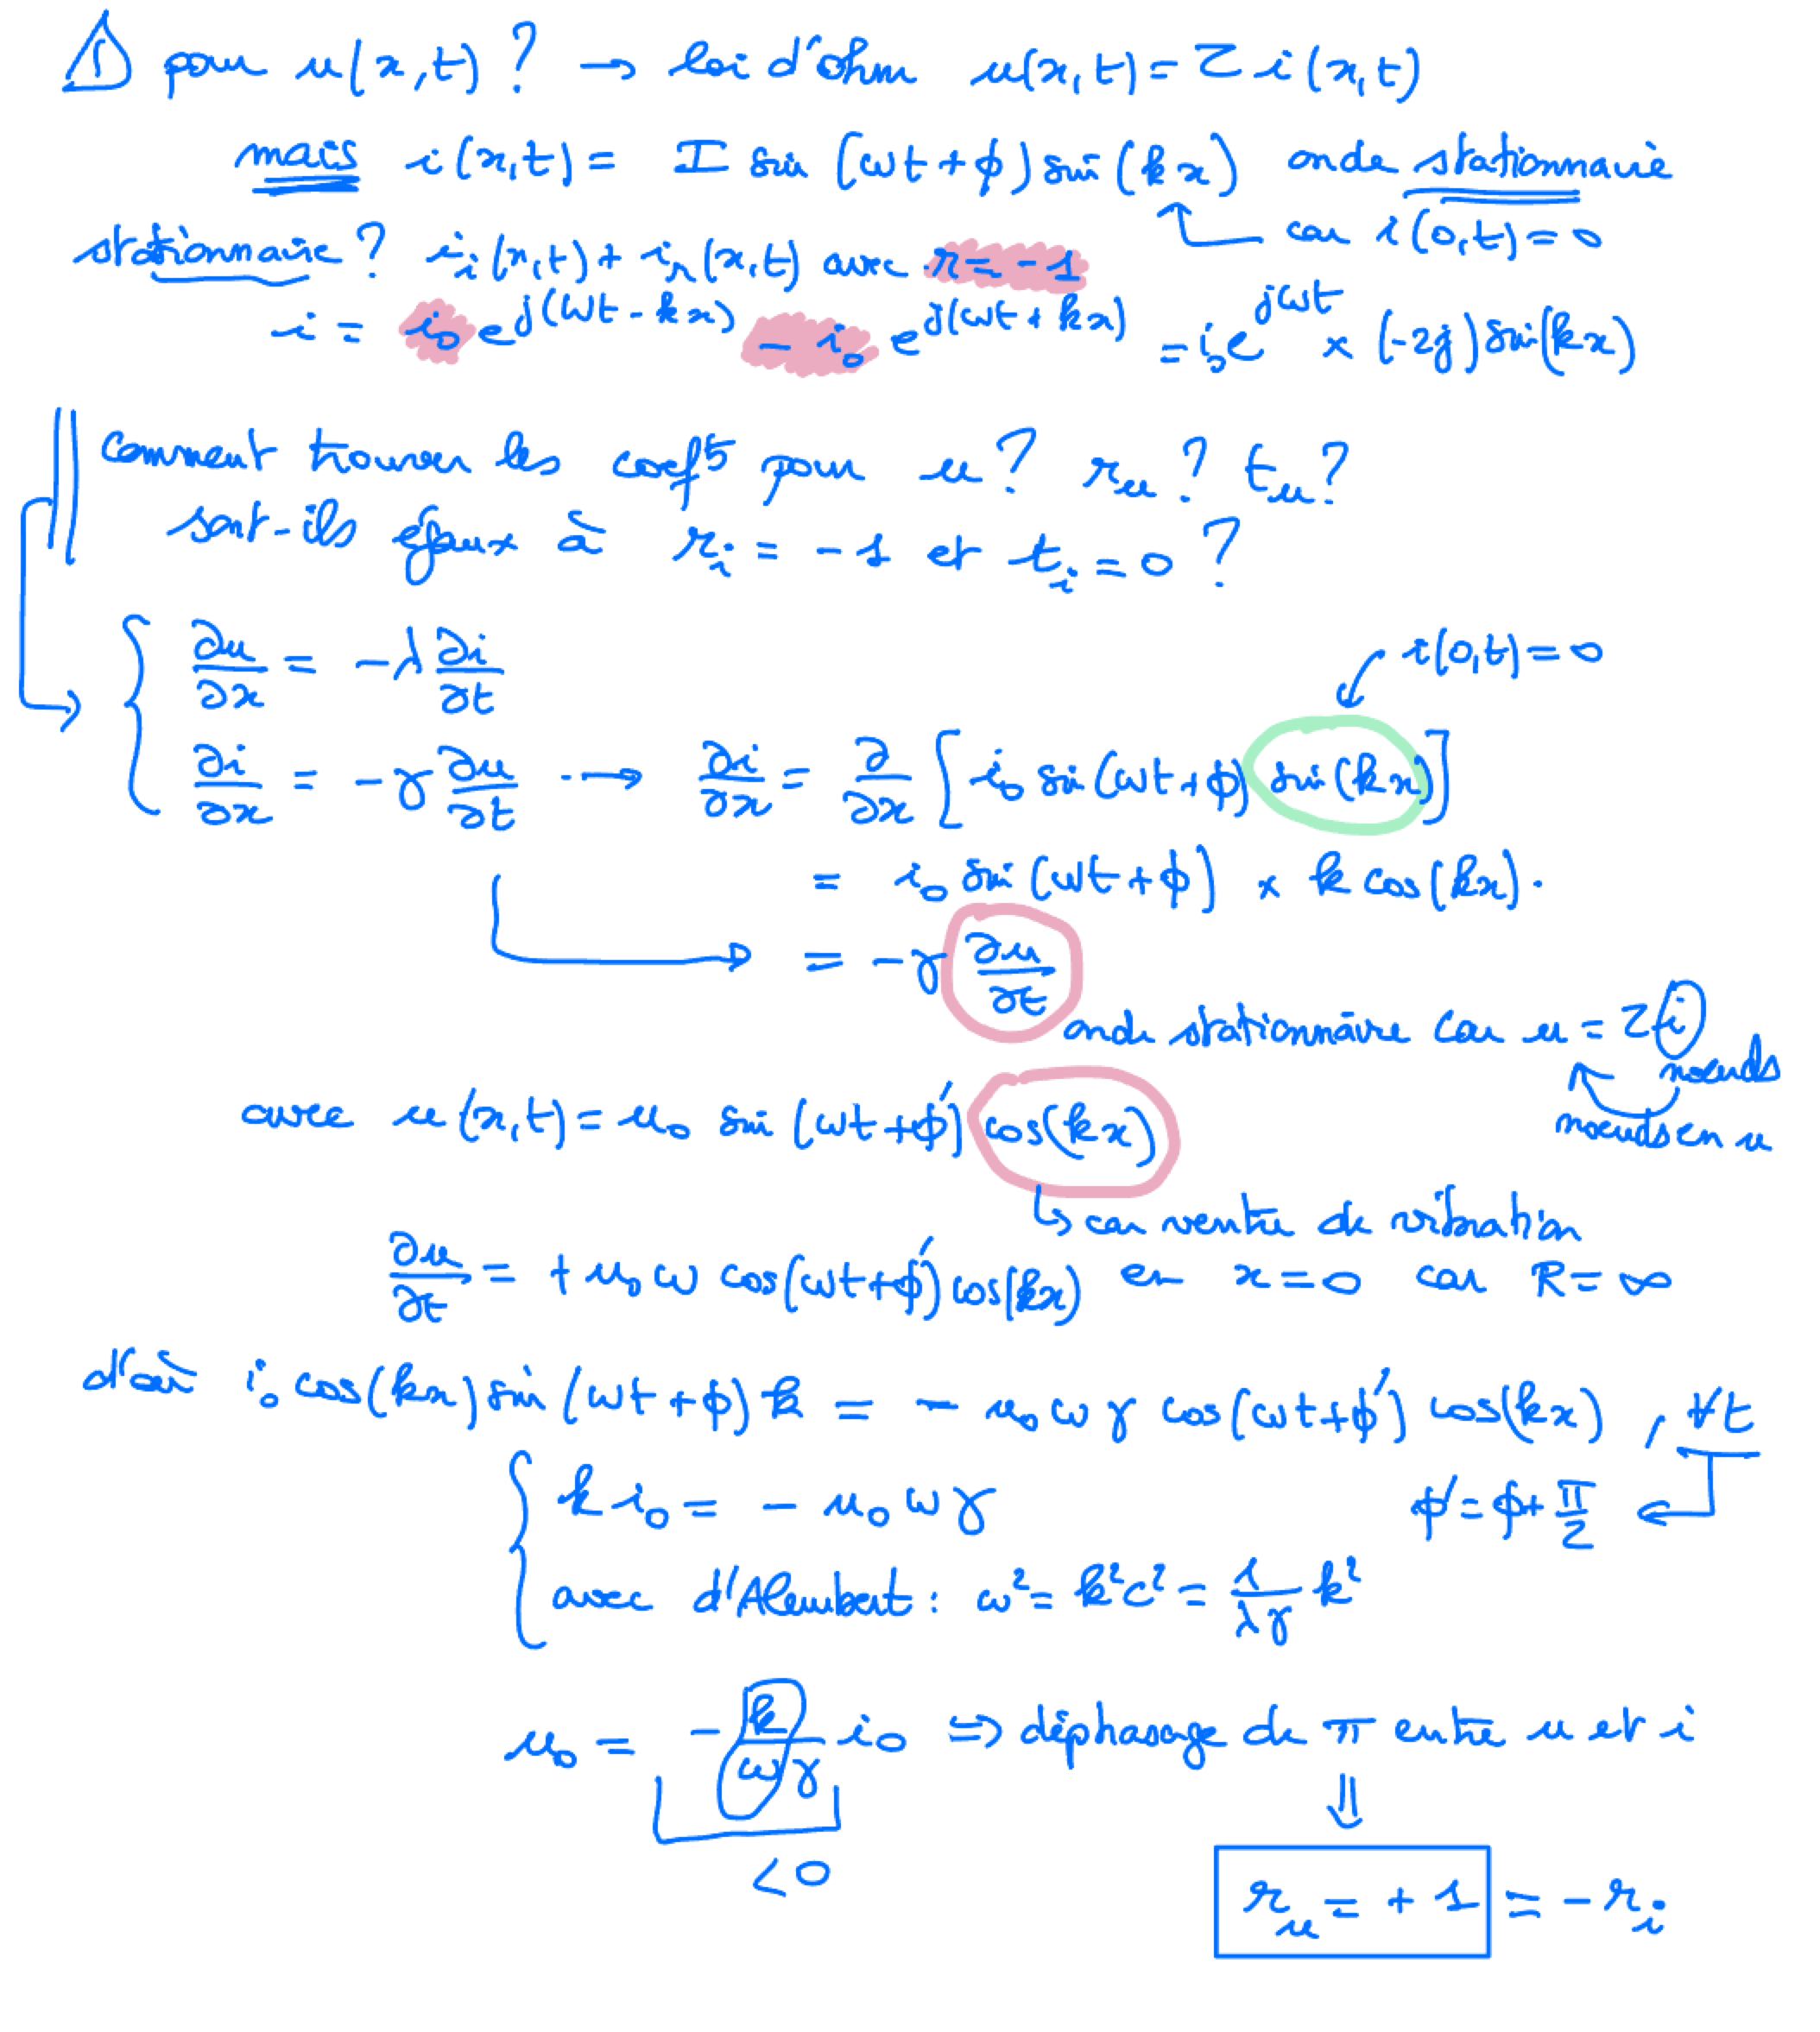 ⚠ pour u(x,t) ? → loi d'ohm u(x,t) = Z i(x,t)
mais i(x,t) = I sin (ωt + ϕ) sin (kx) onde stationnaire
car i(0,t) = 0
stationnaire ? i_i(x,t) + i_r(x,t) avec r = -1
i = i₀ e^{j(ωt - kx)} - i₀ e^{j(ωt + kx)} = i₀ e^{jωt} × (-2j) sin(kx)
comment trouver les coefts pour u ? r_u ? t_u ?
sont-ils égaux à r_i = -1 et t_i = 0 ?
∂u/∂x = -λ ∂i/∂t
i(0,t) = 0
∂i/∂x = -γ ∂u/∂t → ∂i/∂x = ∂/∂x [i₀ sin (ωt + ϕ) sin (kx)]
= i₀ sin (ωt + ϕ) × k cos(kx).
= -γ ∂u/∂t
onde stationnaire car u = Z i
noeuds
noeuds en u
avec u(x,t) = u₀ sin (ωt + ϕ') cos(kx)
↳ car ventre de vibration
∂u/∂t = + u₀ ω cos(ωt + ϕ') cos(kx) en x = 0 car R = ∞
d'où i₀ cos(kx) sin (ωt + ϕ) k = - u₀ ω γ cos (ωt + ϕ') cos(kx) , ∀t
k i₀ = - u₀ ω γ ϕ' = ϕ + π/2
avec d'Alembert : ω² = k²c² = 1/λγ k²
u₀ = - k/ωγ i₀ ⇒ déphasage de π entre u et i
⇓
< 0
r_u = + 1 = - r_i